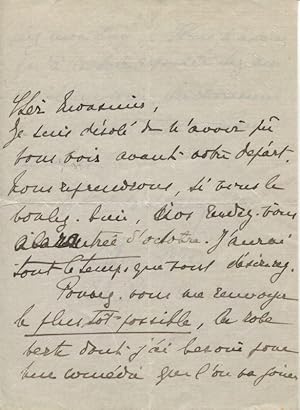 Cher Monsieur,
Je suis désolé de n'avoir pu
vous voir avant votre départ.
Nous reprendrons, si vous le
voulez bien, nos rendez-vous
à la rentrée d'octobre. J'aurai
tout le temps que vous désirez.
Pouvez-vous me renvoyer
le plus tôt possible, la robe
verte dont j'ai besoin pour
une comédie que l'on va jouer